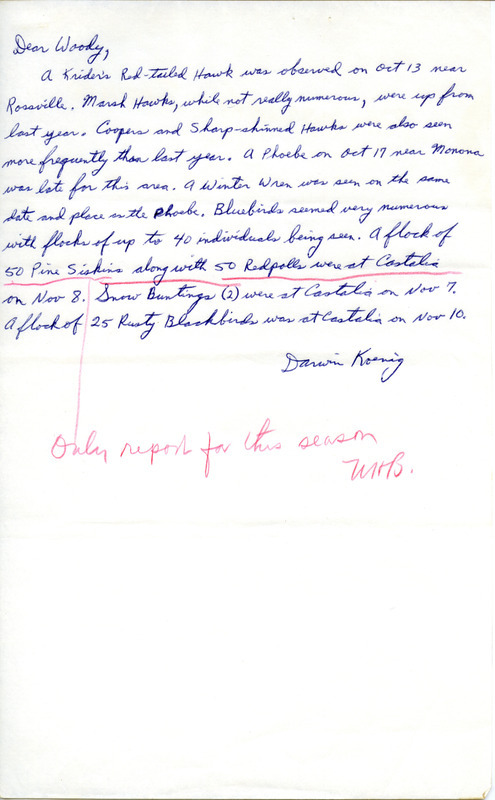 Dear Woody,
A Krider's Red-tailed Hawk was observed on Oct 13 near
Rossville. Marsh Hawks, while not really numerous, were up from
last year. Coopers and Sharp-shinned Hawks were also seen
more frequently than last year. A Phoebe on Oct 17 near Monona
was late for this area. A Winter Wren was seen on the same
date and place as the Phoebe. Bluebirds seemed very numerous
with flocks of up to 40 individuals being seen. A flock of
50 Pine Siskins along with 50 Redpolls were at Castalia
on Nov 8. Snow Buntings (2) were at Castalia on Nov 7.
A flock of 25 Rusty Blackbirds was at Castalia on Nov 10.
Darwin Koenig
Only report for this season
WHB.